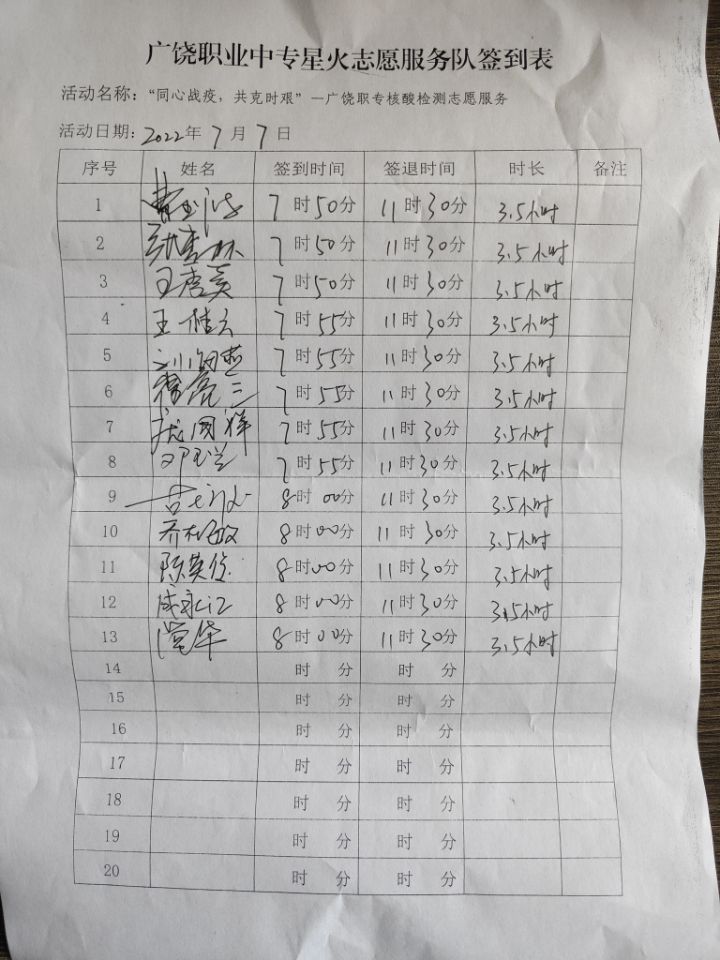 广饶职业中专星火志愿服务队签到表
活动名称：“同心战疫，共克时艰”—广饶职专核酸检测志愿服务
活动日期：2022年7月7日
序号 姓名 签到时间 签退时间 时长 备注
1 7时50分 11时30分 3.5小时
2 7时50分 11时30分 3.5小时
3 7时50分 11时30分 3.5小时
4 王 7时55分 11时30分 3.5小时
5 7时55分 11时30分 3.5小时
6 7时55分 11时30分 3.5小时
7 国祥 7时55分 11时30分 3.5小时
8 7时55分 11时30分 3.5小时
9 8时00分 11时30分 3.5小时
10 乔 8时00分 11时30分 3.5小时
11 陈英俊 8时00分 11时30分 3.5小时
12 永江 8时00分 11时30分 3.5小时
13 8时00分 11时30分 3.5小时
14 时 分 时 分
15 时 分 时 分
16 时 分 时 分
17 时 分 时 分
18 时 分 时 分
19 时 分 时 分
20 时 分 时 分